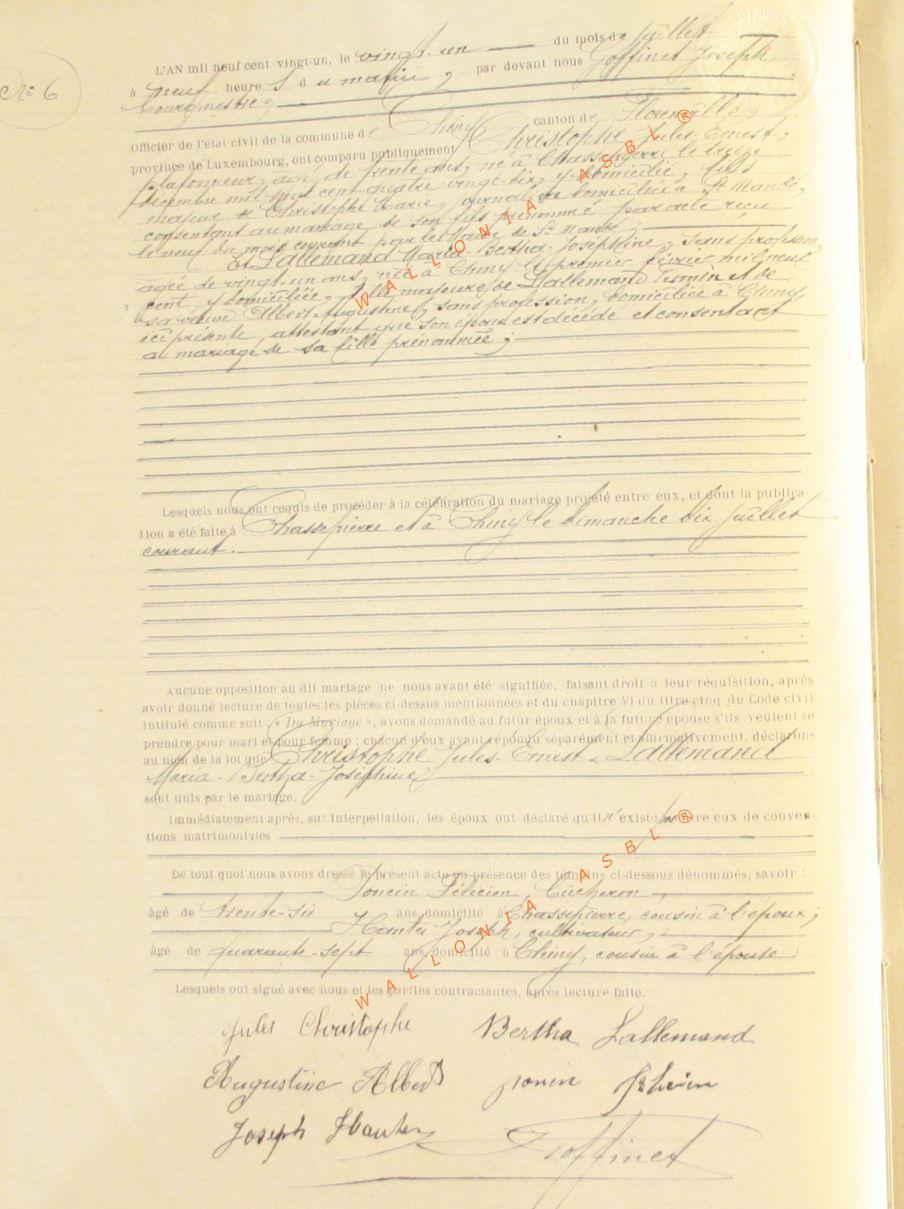 N° 6
L'AN mil neuf cent vingt-un, le vingt-un du mois de juillet
à neuf heure s du matin, par devant nous Goffinet Joseph,
bourgmestre,
Officier de l'état civil de la commune de Chiny canton de Florenville,
province de Luxembourg, ont comparu publiquement Christophe Jules-Ernest,
plafonneur, âgé de trente ans, né à Chassepierre le treize
décembre mil huit cent quatre vingt-dix, y domicilié, fils
majeur de Christophe Marie, journalière domiciliée à St Mandé,
consentant au mariage de son fils prénommé par acte reçu
le neuf du mois courant par le Maire de St Mandé;
Et Lallemand Maria-Bertha-Joséphine, sans profession,
âgée de vingt-un ans, née à Chiny le premier février mil neuf
cent, y domiciliée, fille majeure de Lallemand Firmin et de
sa veuve Albert Augustine, sans profession, domiciliée à Chiny,
ici présente, attestant que son époux est décédé et consentant
au mariage de sa fille prénommée;
Lesquels nous ont requis de procéder à la célébration du mariage projeté entre eux, et dont la publica-
tion a été faite à Chassepierre et à Chiny le dimanche dix juillet
courant.
Aucune opposition au dit mariage ne nous ayant été signifiée, faisant droit à leur réquisition, après
avoir donné lecture de toutes les pièces ci-dessus mentionnées et du chapitre VI du titre cinq du Code civil
intitulé comme suit « Du Mariage », avons demandé au futur époux et à la future épouse s'ils veulent se
prendre pour mari et pour femme; chacun d'eux ayant répondu séparément et affirmativement, déclarons
au nom de la loi que Christophe Jules-Ernest & Lallemand
Maria-Bertha-Joséphine
sont unis par le mariage.
Immédiatement après, sur interpellation, les époux ont déclaré qu'il n'existe entre eux de conven-
tions matrimoniales
De tout quoi nous avons dressé le présent acte en présence des témoins ci-dessous dénommés, savoir :
Poncin Félicien, bûcheron,
âgé de trente-six ans, domicilié à Chassepierre, cousin à l'époux;
Joseph, cultivateur,
âgé de quarante-sept ans, domicilié à Chiny, cousin à l'épouse
Lesquels ont signé avec nous et les parties contractantes, après lecture faite.
Jules Christophe Bertha Lallemand
Augustine Albert
Joseph Goffinet
WALLONIA ASBL ®
WALLONIA ASBL ®